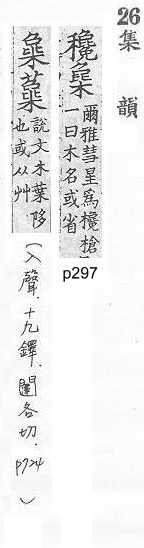 26
集韻
欃
爾雅彗星爲欃槍
一曰木名或省
p297
說文木葉陊
也或从艸
(入聲.十九鐸.闥各切.p724)